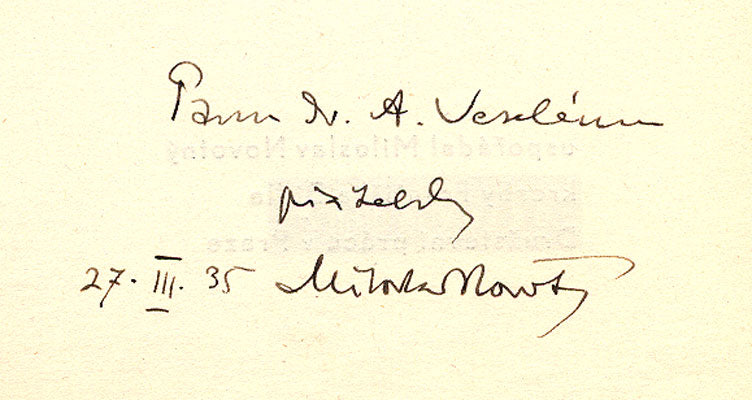 Panu Dr. A. Veselému
uspořádal Miloslav Novotný
přátelsky
27. III. 35 Miloslav Novotný